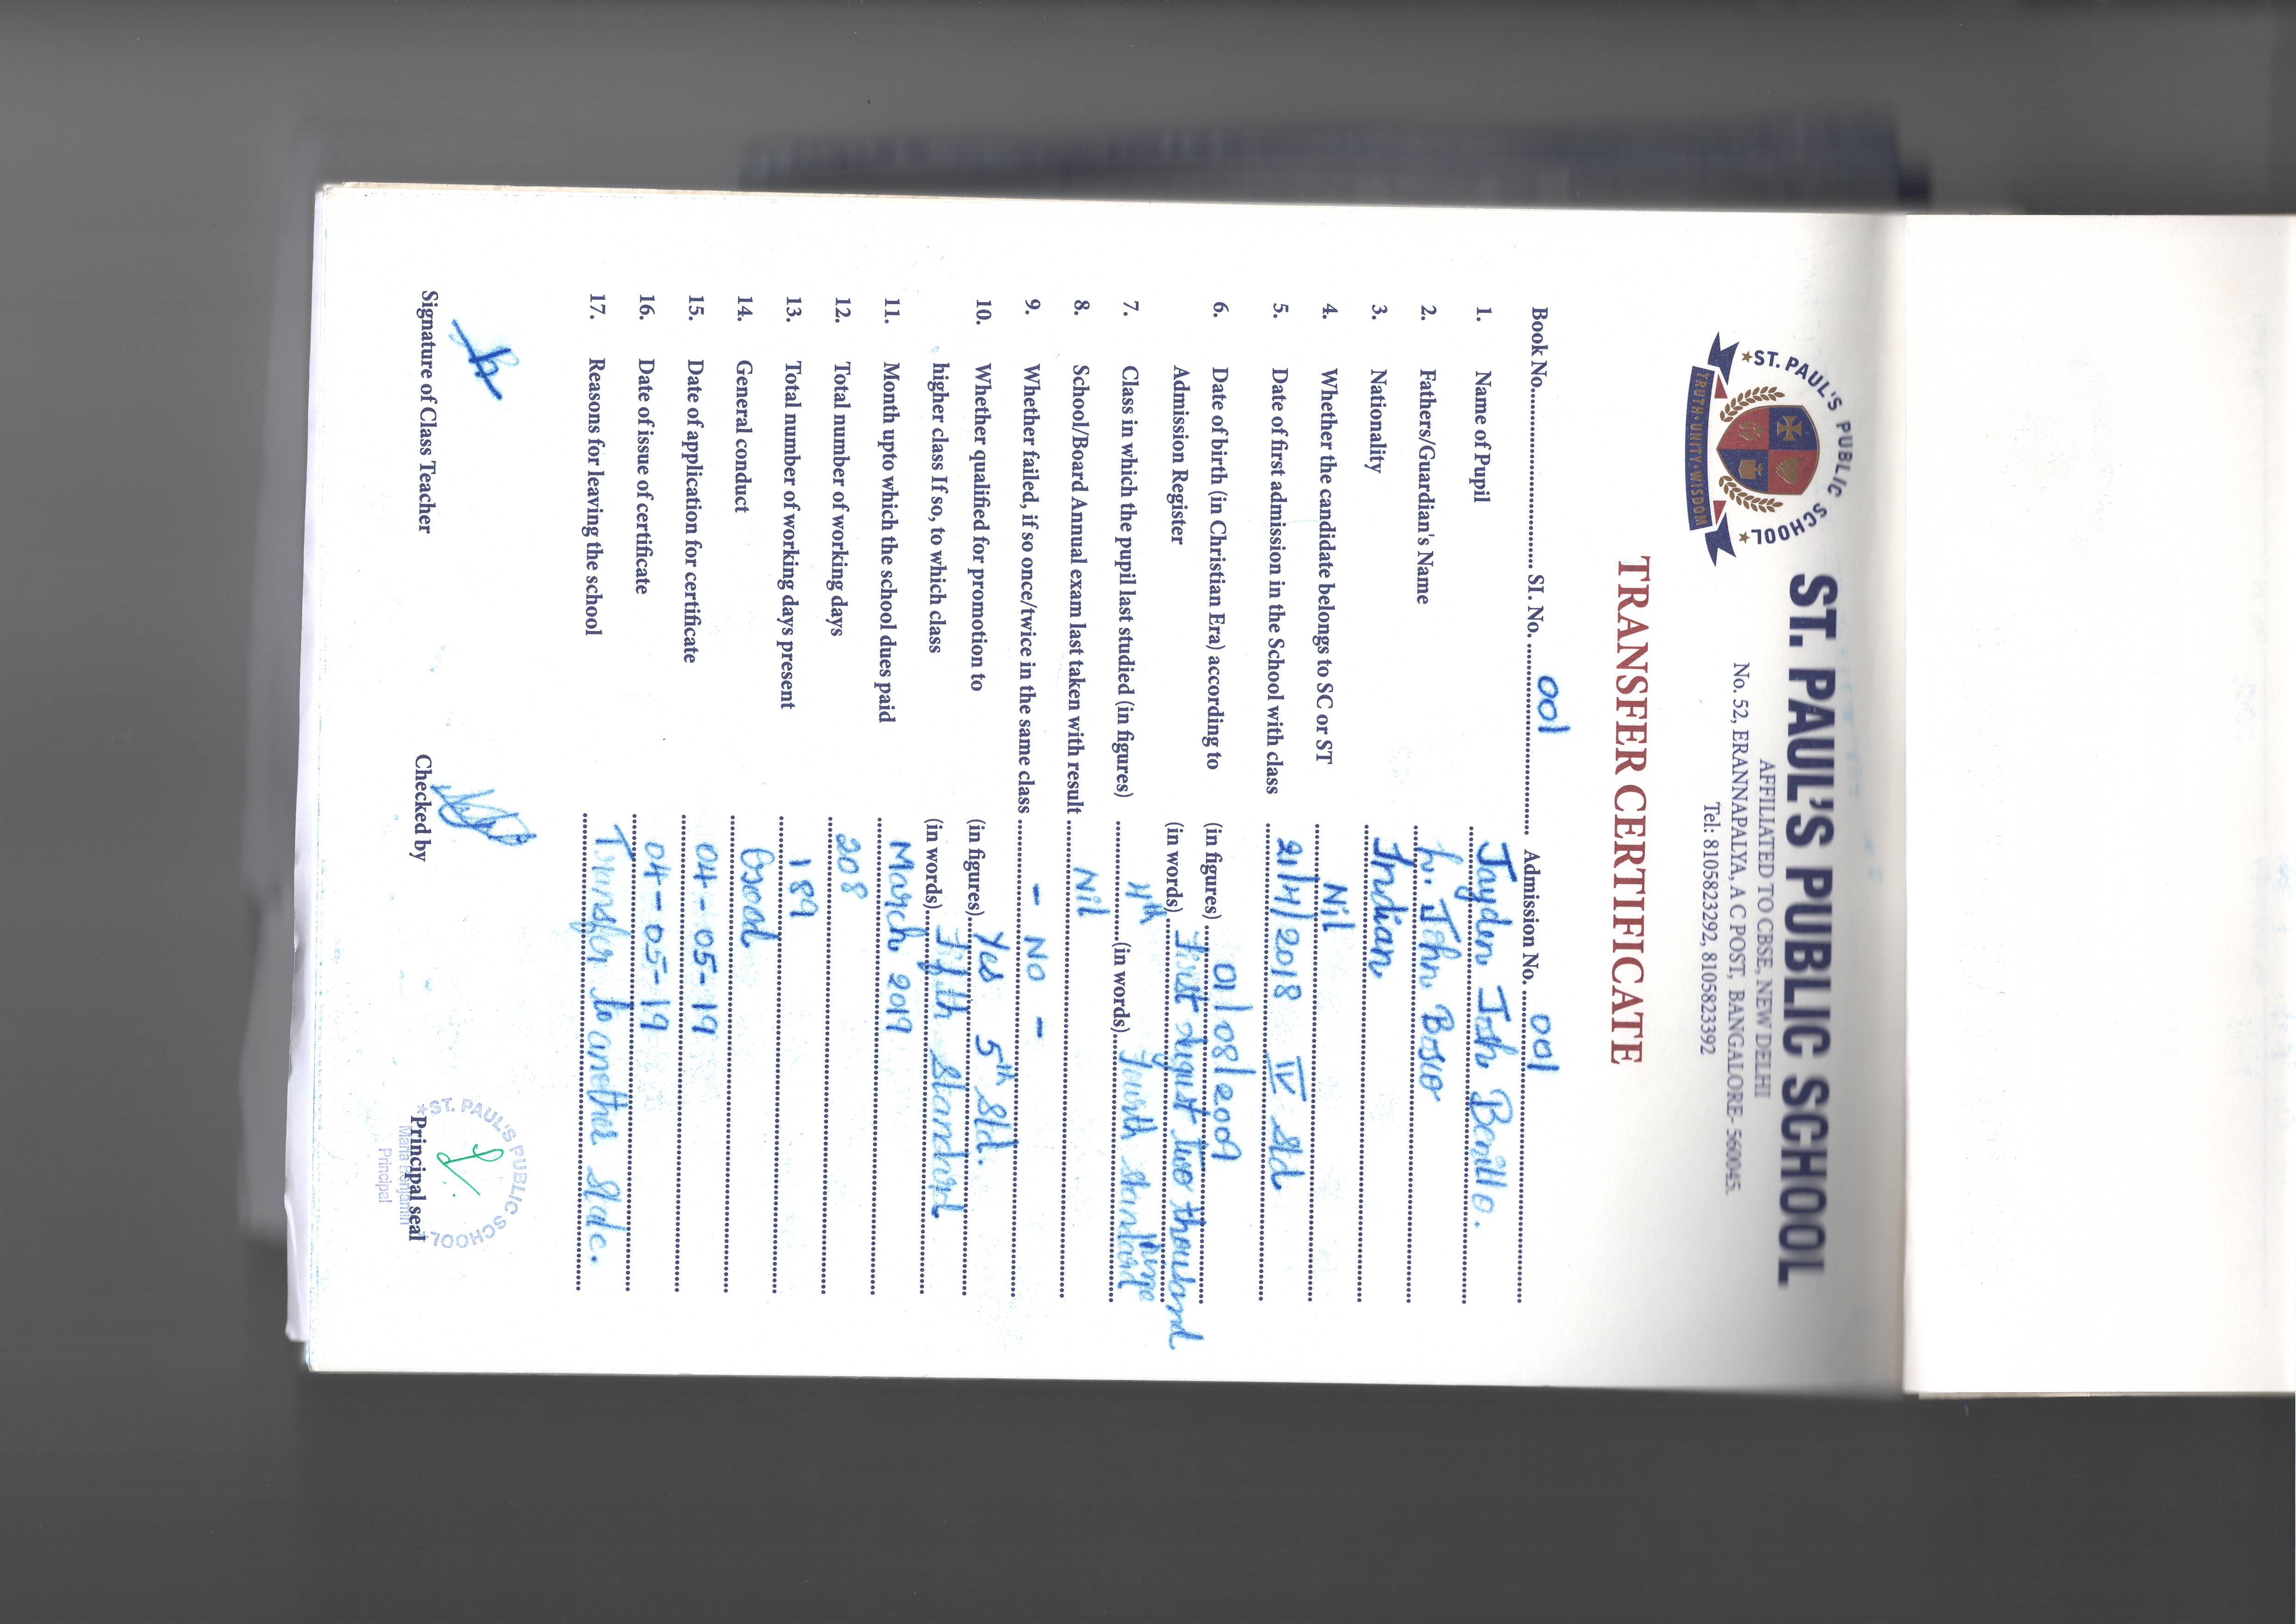 ST. PAUL'S PUBLIC SCHOOL
TRUTH · UNITY · WISDOM
ST. PAUL'S PUBLIC SCHOOL
AFFILIATED TO CBSE, NEW DELHI
No. 52, ERANNAPALYA, A C POST, BANGALORE- 560045.
Tel: 8105823292, 8105823392
TRANSFER CERTIFICATE
Book No. SI. No. 001 Admission No. 001
1. Name of Pupil Jayden Josh Benillo.
2. Fathers/Guardian's Name L. John Bosco
3. Nationality Indian
4. Whether the candidate belongs to SC or ST Nil
5. Date of first admission in the School with class 21/4/2018 IV Std
6. Date of birth (in Christian Era) according to (in figures) 01/08/2009
Admission Register (in words) First August two thousand nine
7. Class in which the pupil last studied (in figures) 4th (in words) Fourth standard
8. School/Board Annual exam last taken with result Nil
9. Whether failed, if so once/twice in the same class - NO -
10. Whether qualified for promotion to (in figures) Yes 5th Std.
higher class If so, to which class (in words) Fifth standard
11. Month upto which the school dues paid March 2019
12. Total number of working days 208
13. Total number of working days present 189
14. General conduct Good
15. Date of application for certificate 04-05-19
16. Date of issue of certificate 04-05-19
17. Reasons for leaving the school Transfer to another State.
ST. PAUL'S PUBLIC SCHOOL
Signature of Class Teacher Checked by Principal seal
Maria Benjamin
Principal